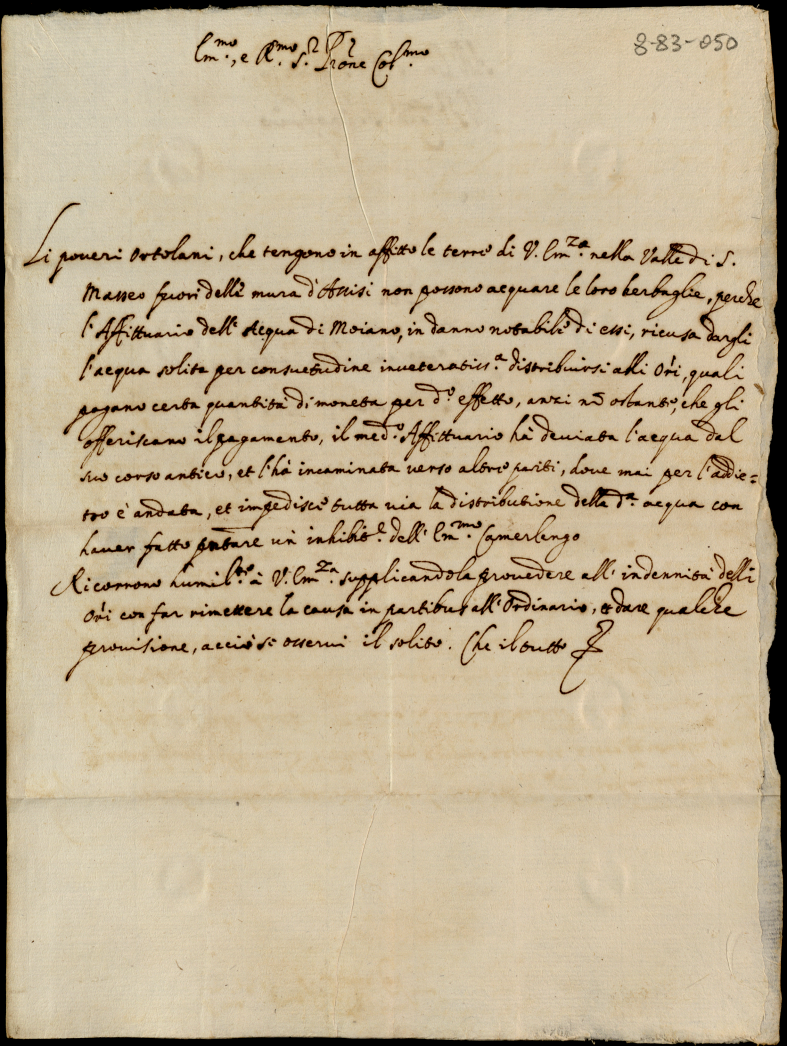 8-83-050
Em.mo, e R.mo S.r P.rone Col.mo
Li poveri Ortolani, che tengono in affitto le terre di V. Em.za nella Valle di S.
Masseo fuori delle mura d'Assisi non possono acquare le loro herbaglie, perche
l'Affittuario dell'Acqua di Moiano, in danno notabile di essi, ricusa dargli
l'acqua solita per consuetudine inveteratiss.a distribuirsi alli Ori, quali
pagano certa quantità di moneta per d.o effetto, anzi nō ostante, che gli
offeriscano il pagamento, il med.o Affittuario hà deviata l'acqua dal
suo corso antico, et l'hà incaminata verso altre parti, dove mai per l'addie=
tro è andata, et impedisce tutta via la distributione della d.a acqua con
haver fatto pntare un'inhibit.e dell'Em.mo Camerlengo
Ricorrono humil.te à V. Em.za supplicandola provedere all'indennità delli
Ori con far rimettere la causa in partibus all'Ordinario, et dare qualche
provisione, acciò si osservi il solito. Che il tutto